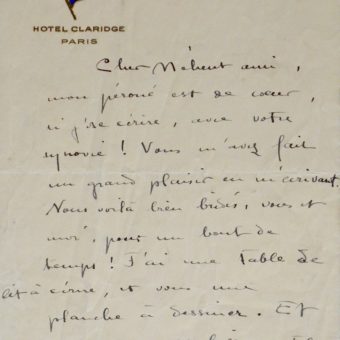 HOTEL CLARIDGE
PARIS
Cher
ami,
mon péroné est de cœur,
si j'ose écrire, avec votre
synovie ! Vous m'avez fait
un grand plaisir en m'écrivant.
Nous voilà bien bridés, vous et
moi, pour un bout de
temps ! J'ai une Table de
lit à écrire, et vous une
planche à dessiner. Et